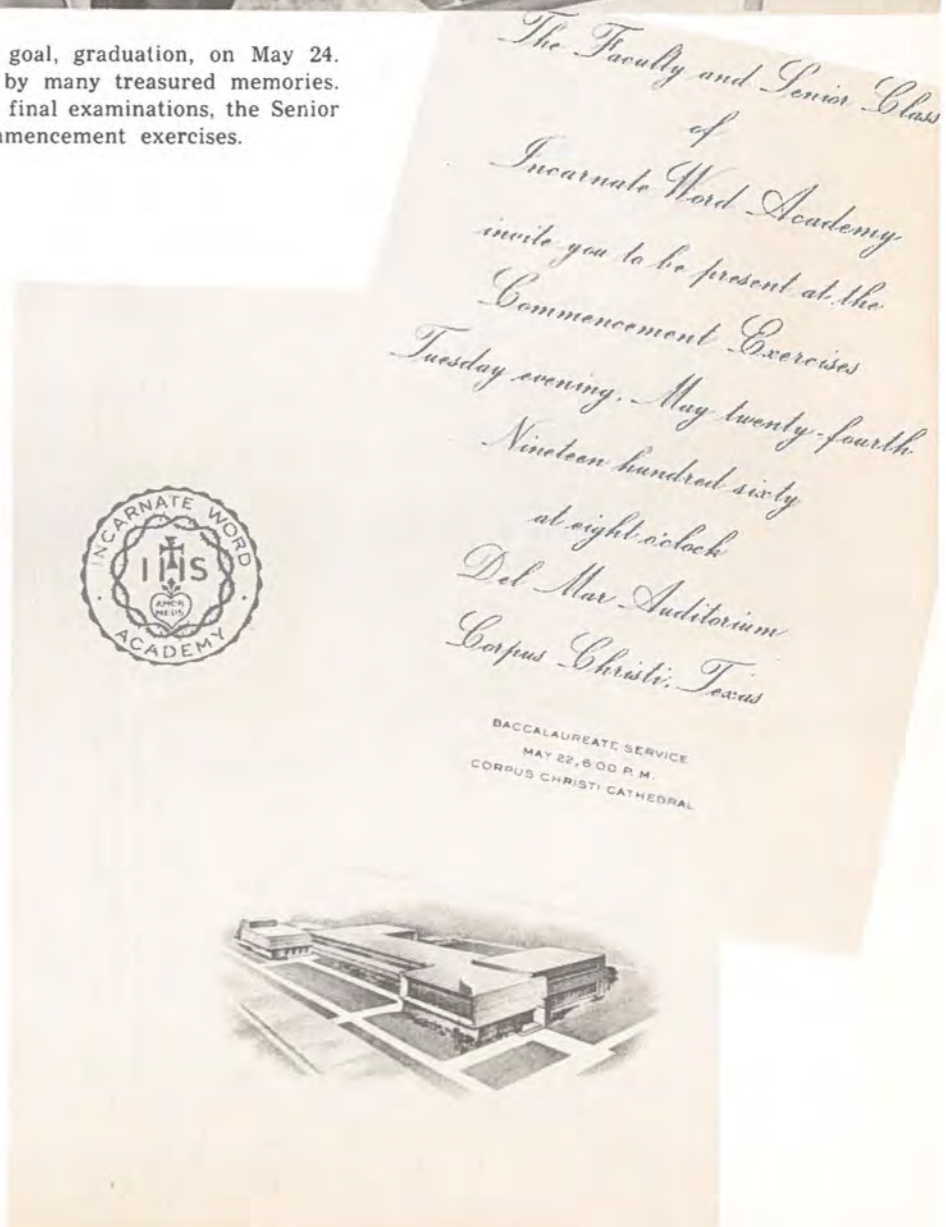 goal, graduation, on May 24.
by many treasured memories.
final examinations, the Senior
mmencement exercises.
The Faculty and Senior Class
of
Incarnate Word Academy
invite you to be present at the
Commencement Exercises
Tuesday evening, May twenty-fourth
Nineteen hundred sixty
at eight o'clock
Del Mar Auditorium
Corpus Christi, Texas
BACCALAUREATE SERVICE
MAY 22, 6:00 P. M.
CORPUS CHRISTI CATHEDRAL
INCARNATE WORD
IHS
AMOR
MEUS
ACADEMY